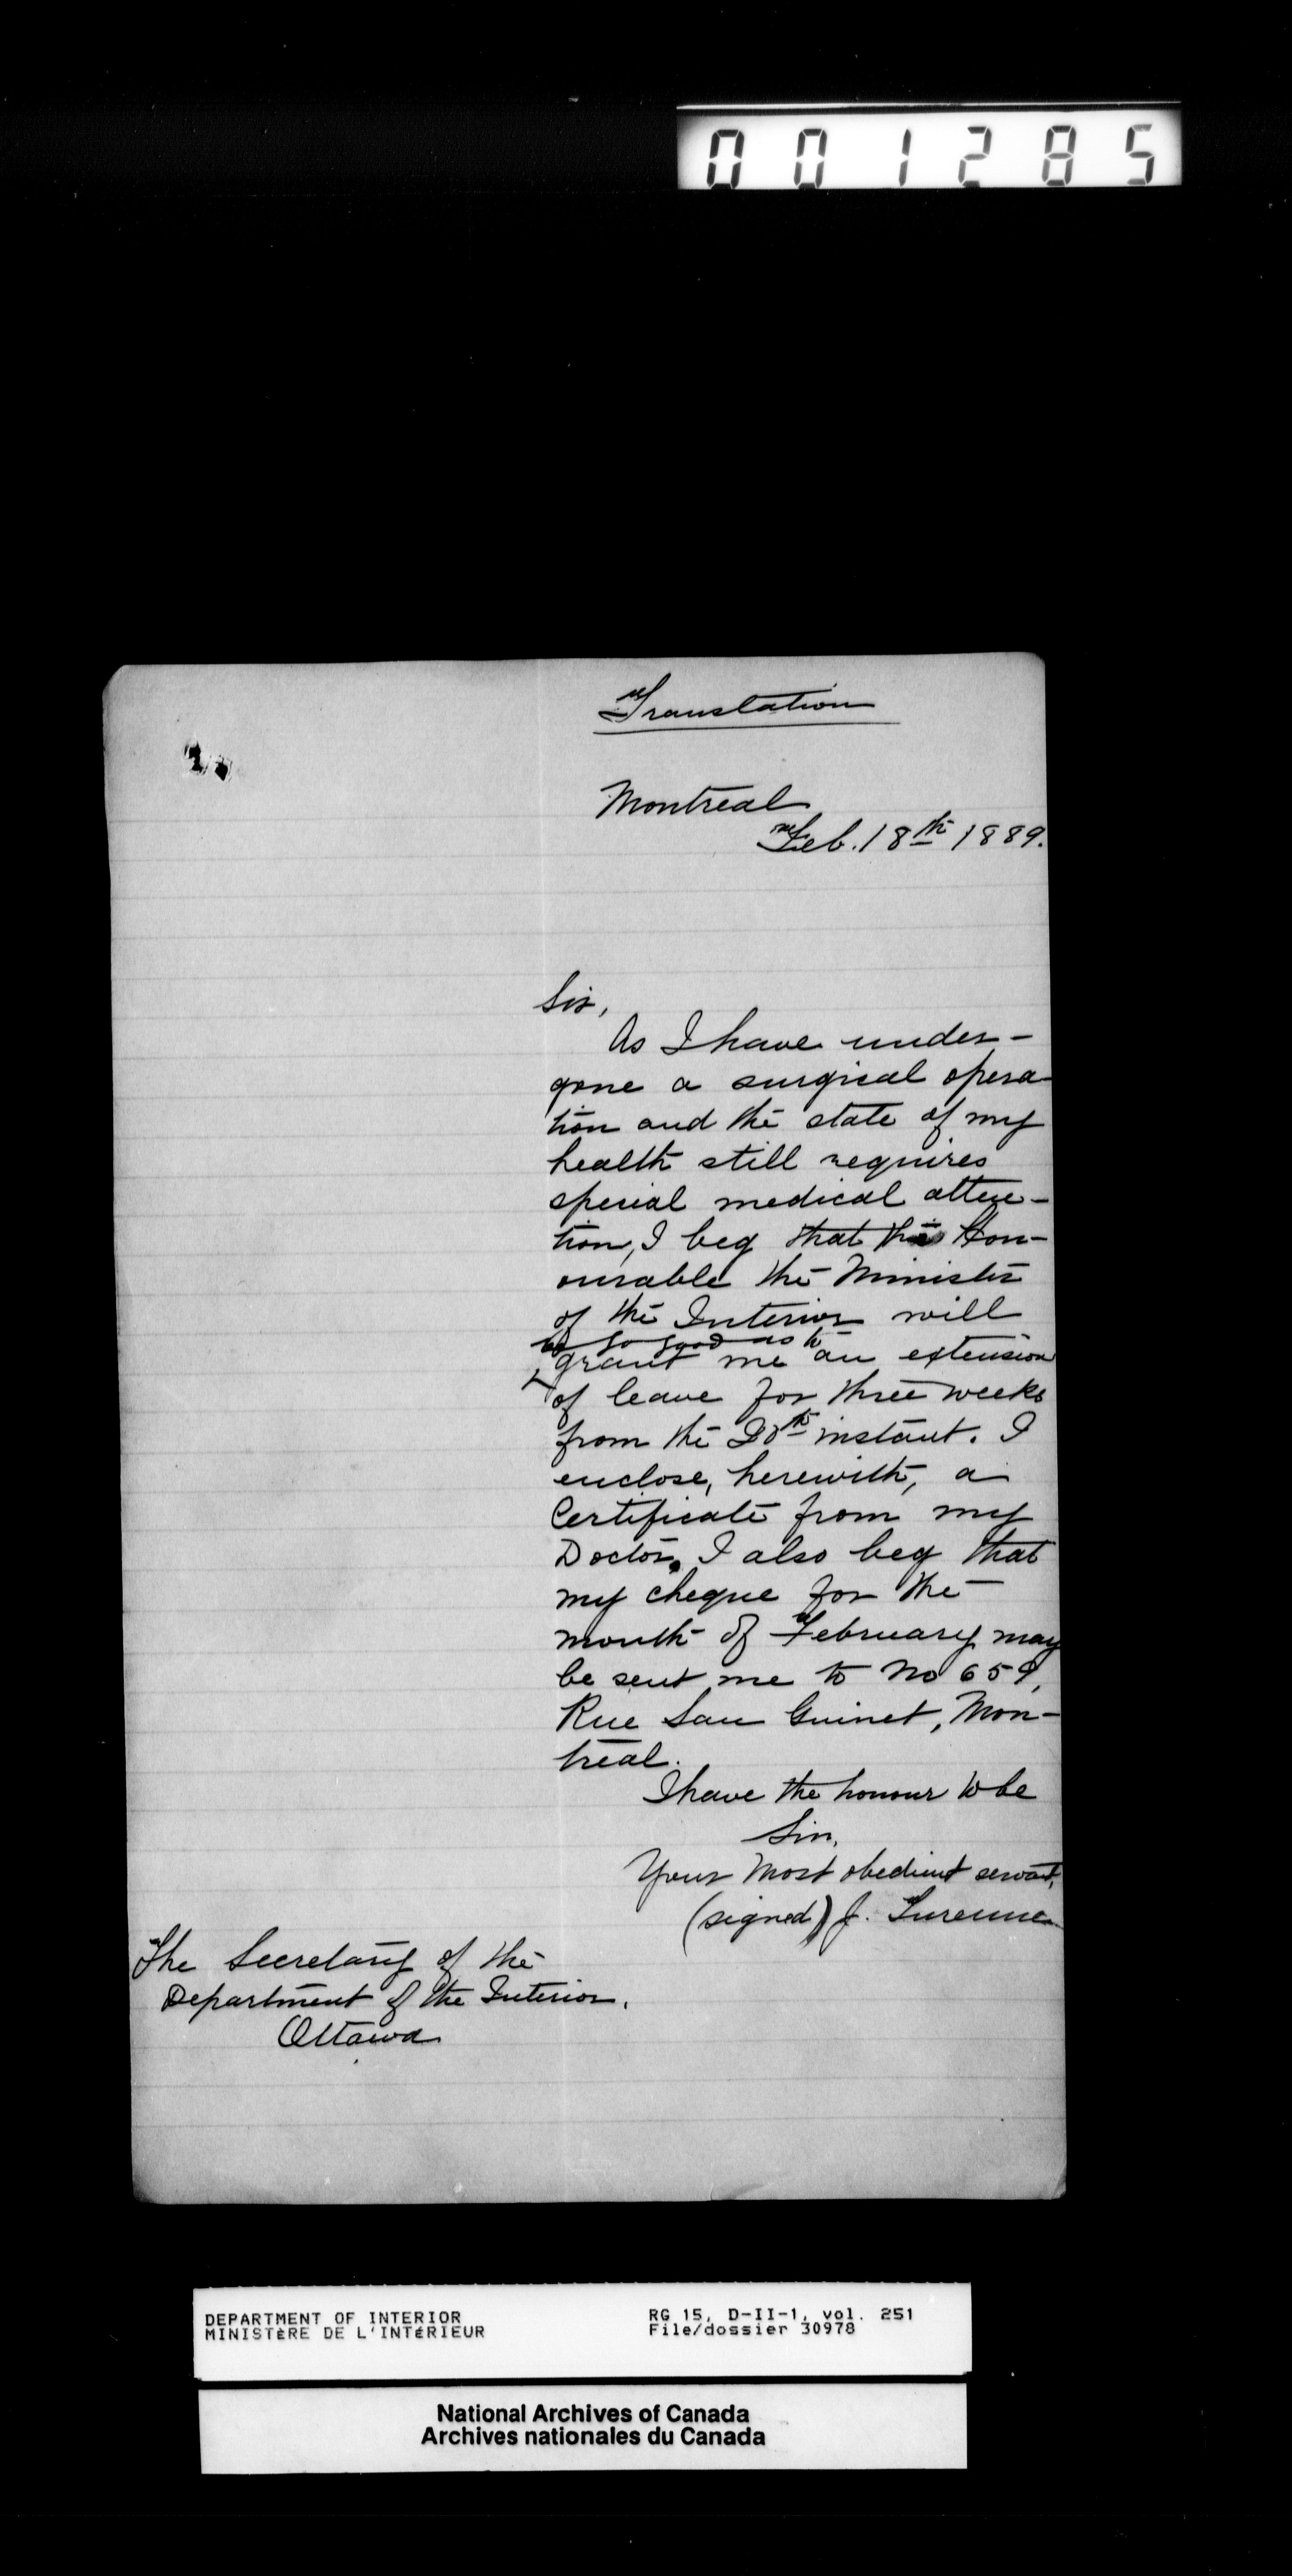 001285
Translation
Montreal
Feb. 18th 1889.
Sir,
As I have under-
gone a surgical opera-
tion and the state of my
health still requires
special medical atten-
tion, I beg that the Hon-
ourable the Minister
of the Interior will
be so good as to
grant me an extension
of leave for three weeks
from the 20th instant. I
enclose, herewith, a
Certificate from my
Doctor. I also beg that
my cheque for the
month of February may
be sent me to No 659,
Rue San Guinet, Mon-
treal.
I have the honour to be
Sir,
Your most obedient servant,
(signed) J. Turenne
The Secretary of the
Department of the Interior.
Ottawa
DEPARTMENT OF INTERIOR
MINISTÈRE DE L'INTÉRIEUR
RG 15, D-II-1, vol. 251
File/dossier 30978
National Archives of Canada
Archives nationales du Canada